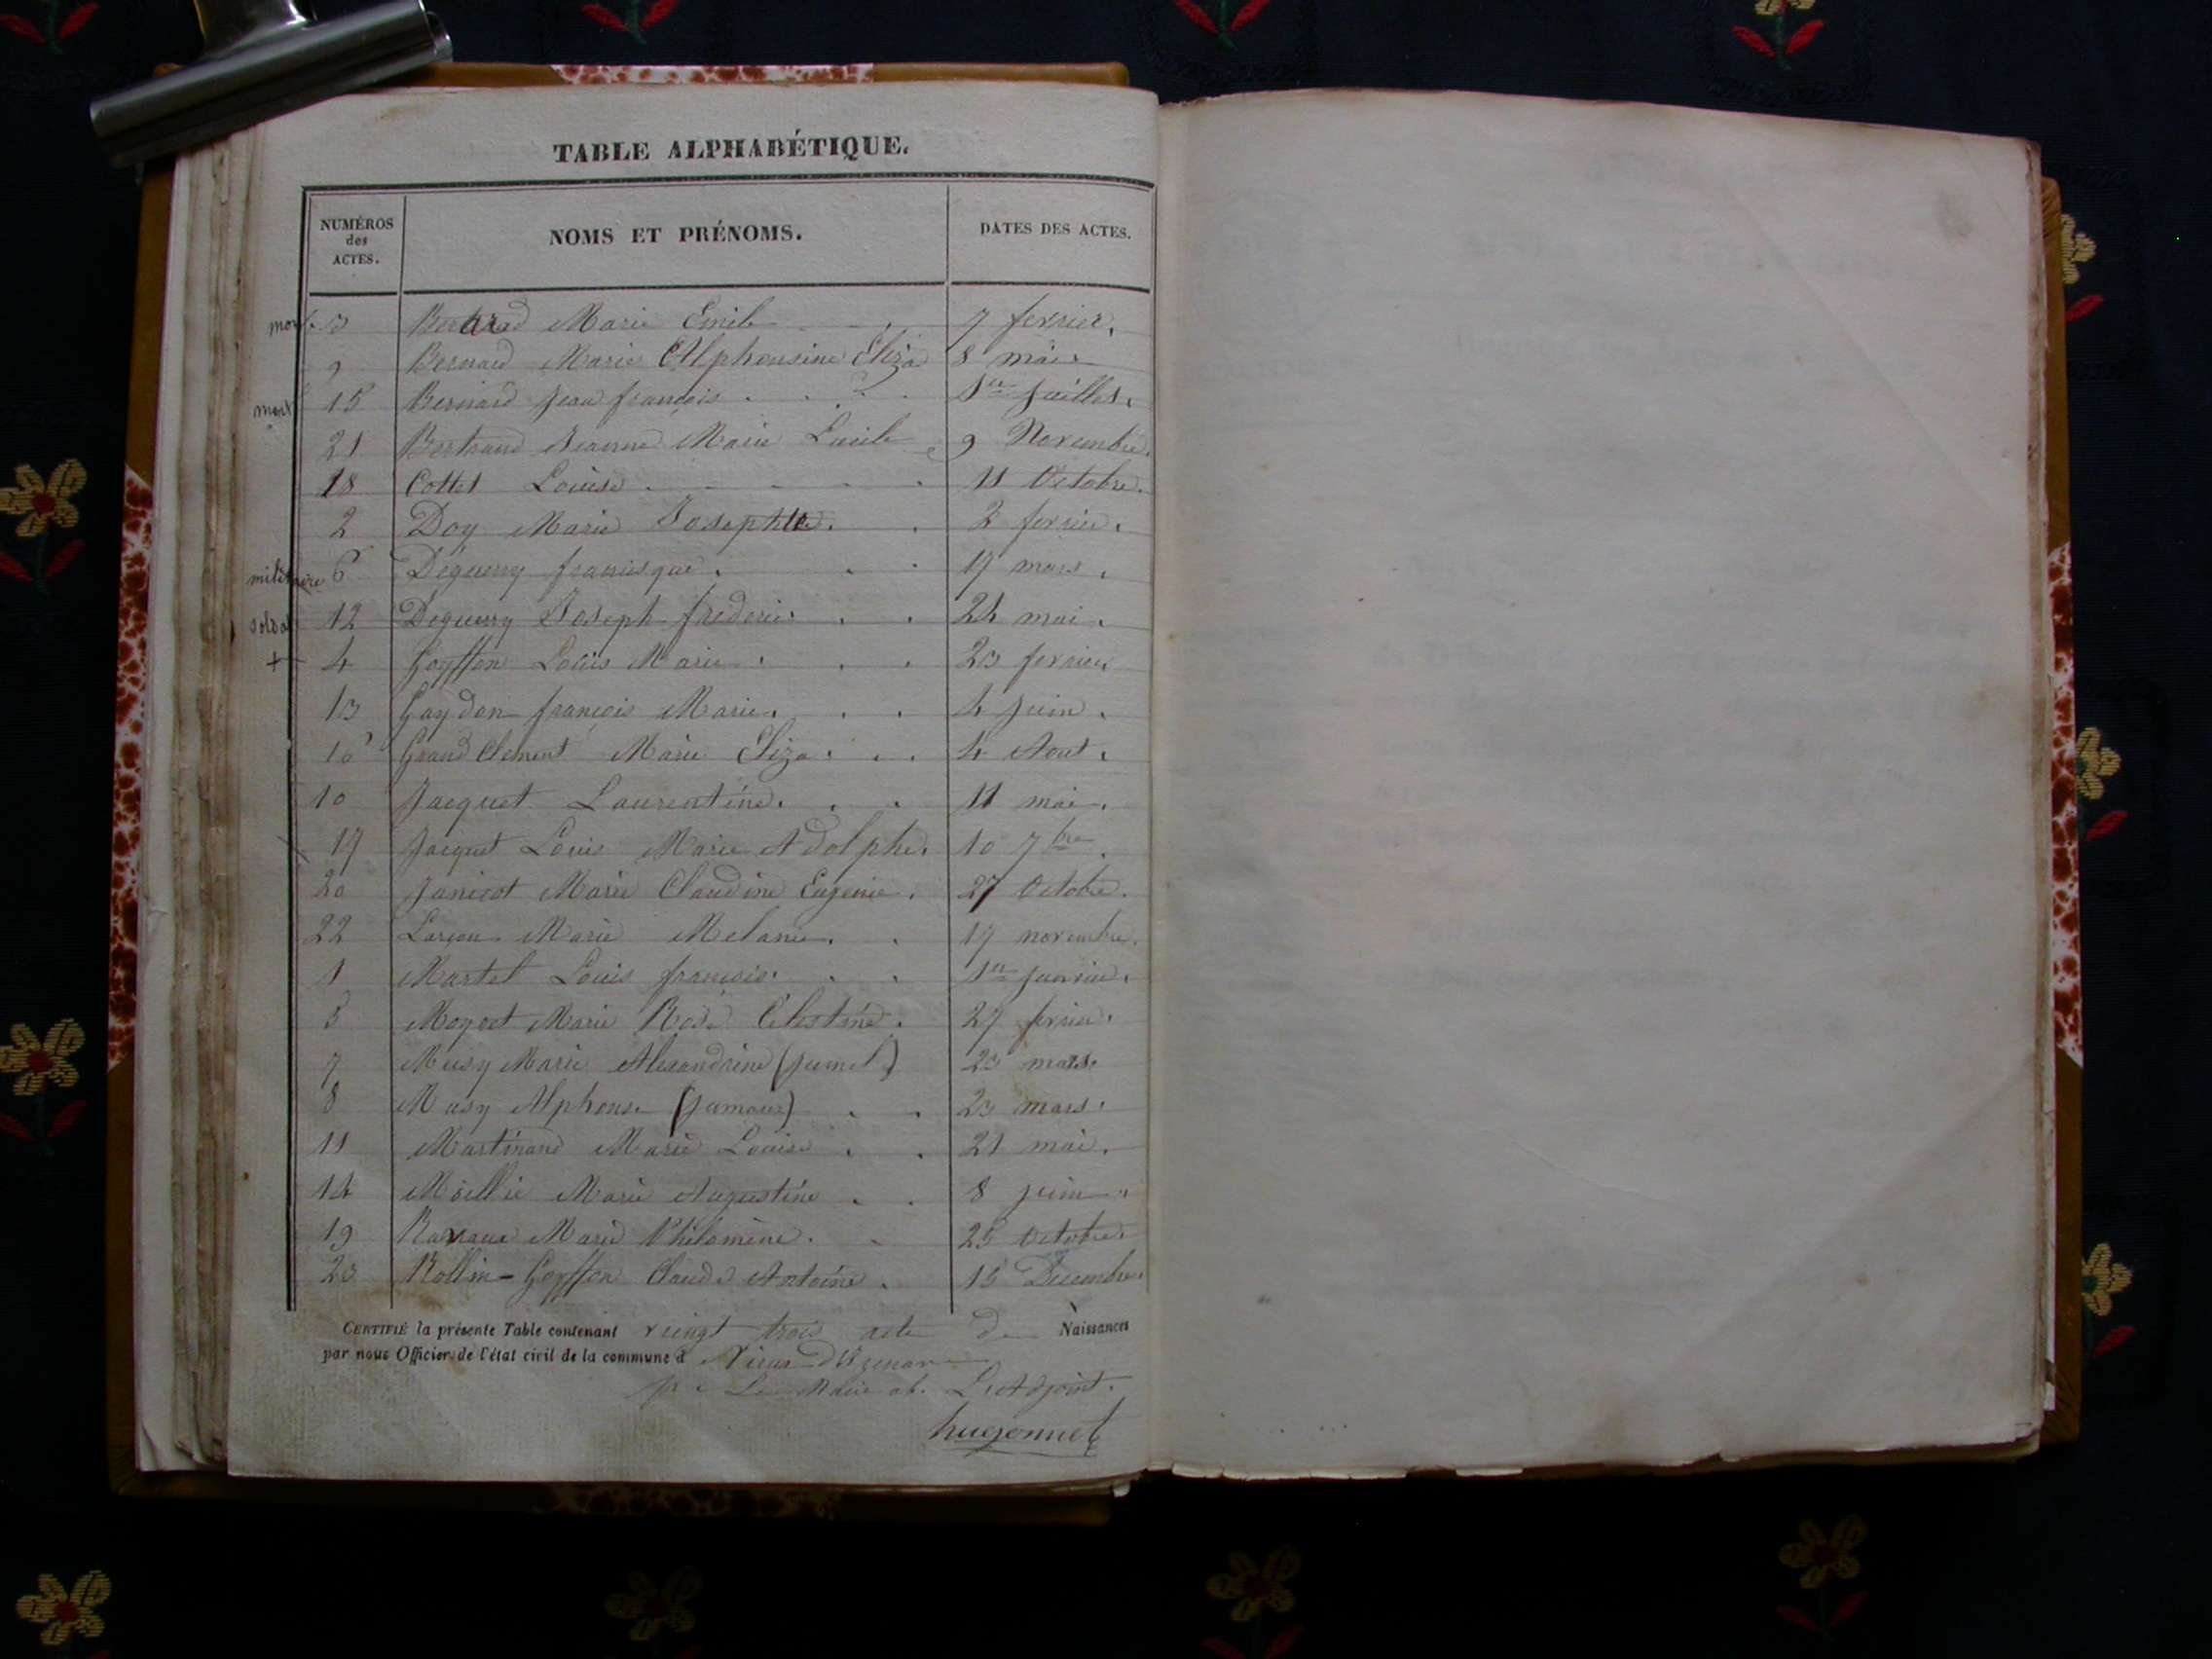 TABLE ALPHABÉTIQUE.
NUMÉROS des ACTES. NOMS ET PRÉNOMS. DATES DES ACTES.
mort 3 Marie Emile 7 fevrier.
9 Bernard Marie Alphonsine Eliza 8 mai.
mort 15 Bernard Jean françois 1er Juillet.
21 Bertrand Jeanne Marie Lucile 9 Novembre.
18 Cottet Louise 11 Octobre.
2 Doy Marie Josephte. 2 fevrier.
militaire 6 Déguerry francisque. 17 mars.
soldat 12 Déguerry Joseph frederic. 24 mai.
+ 4 Goyffon Louis Marie. 23 fevrier
13 Gaydon françois Marie. 4 Juin.
16 Grand Clément Marie Eliza. 4 Aout.
10 Jacquet Laurentine. 11 mai.
17 Jacquet Louis Marie Adolphe. 10 7bre.
20 Janicot Marie Claudine Eugenie. 27 Octobre.
22 Marie Melanie. 17 novembre.
1 Martel Louis françois. 1er Janvier.
5 Moyret Marie Rose Celestine. 27 fevrier.
7 Musy Marie Alexandrine (Jumel) 23 mars.
8 Musy Alphonse 23 mars.
11 Martinand Marie Louise 21 mai.
14 Marie Augustine 8 Juin
19 Marie Philomène. 25 Octobre
23 Rollin-Goyffon Claude Antoine. 15 Decembre.
CERTIFIÉ la présente Table contenant veingt trois acte de Naissances
par nous Officier de l'état civil de la commune d Vieux d'Izenave
Le Maire ab. L'Adjoint.
hugonnet